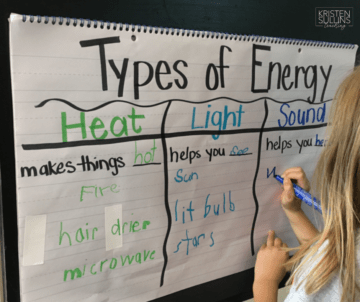 KRISTEN
SULLINS
Teaching
Types of Energy
Heat
Light
Sound
makes things hot
Fire
hair drier
microwave
helps you see
Sun
lit bulb
stars
helps you